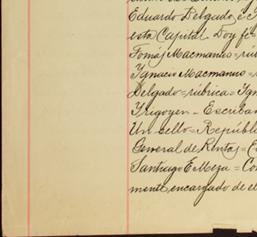 Eduardo Delgado, é I
esta Capital Doy fé
Tomás Macmanus = rú
Ygnacio Macmanus =
Delgado = rubrica = Ygn
Yrigoyen = Escriban
Un sello = Repúbl
General de Rentas = (
Santiago E Meza = Co
mente, encargado de el